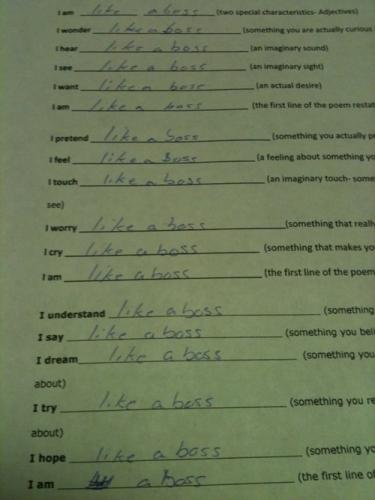 I am like a boss (two special characteristics- Adjectives)
I wonder like a boss (something you are actually curious
I hear like a boss (an imaginary sound)
I see like a boss (an imaginary sight)
I want like a boss (an actual desire)
I am like a boss (the first line of the poem restat
I pretend like a boss (something you actually pr
I feel like a boss (a feeling about something yo
I touch like a boss (an imaginary touch- some
see)
I worry like a boss (something that really
I cry like a boss (something that makes yo
I am like a boss (the first line of the poem
I understand like a boss (something
I say like a boss (something you beli
I dream like a boss (something you
about)
I try like a boss (something you re
about)
I hope like a boss (something yo
I am a boss (the first line of